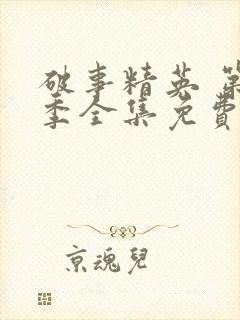 破事精英 第
季全集免費
京魂兒